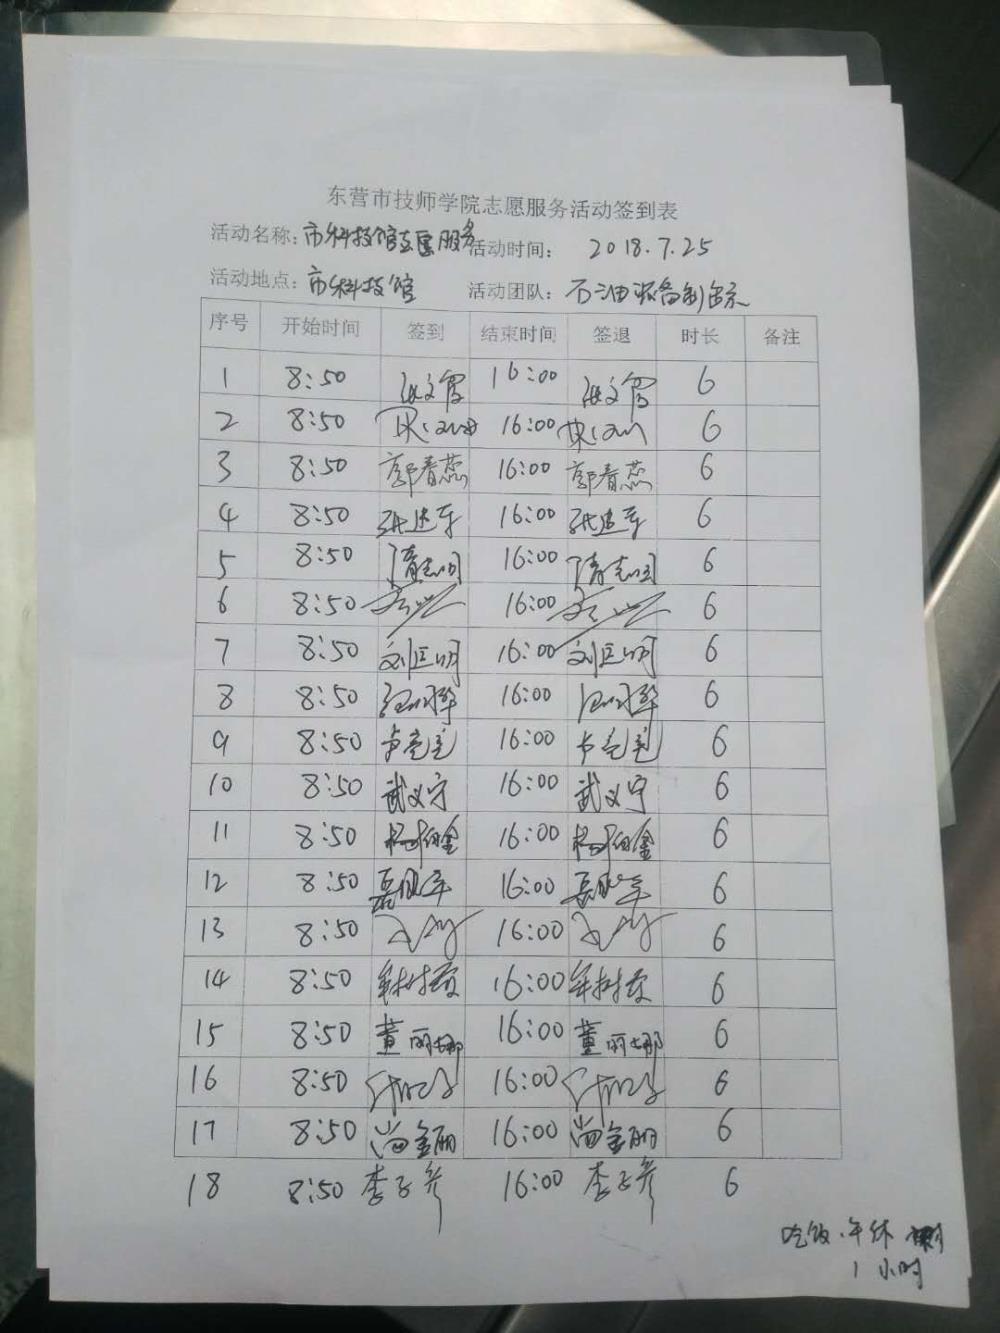 东营市技师学院志愿服务活动签到表
活动名称：市科技馆志愿服务 活动时间： 2018.7.25
活动地点：市科技馆 活动团队：石油装备制造系
序号 开始时间 签到 结束时间 签退 时长 备注
1 8:50 16:00 6
2 8:50 16:00 6
3 8:50 郭春蕊 16:00 郭春蕊 6
4 8:50 16:00 6
5 8:50 16:00 6
6 8:50 16:00 6
7 8:50 刘匡明 16:00 刘匡明 6
8 8:50 16:00 6
9 8:50 16:00 6
10 8:50 武义宁 16:00 武义宁 6
11 8:50 16:00 6
12 8:50 16:00 6
13 8:50 16:00 6
14 8:50 16:00 6
15 8:50 董丽娜 16:00 董丽娜 6
16 8:50 16:00 6
17 8:50 尚金丽 16:00 尚金丽 6
18 8:50 16:00 6
吃饭、午休
1小时